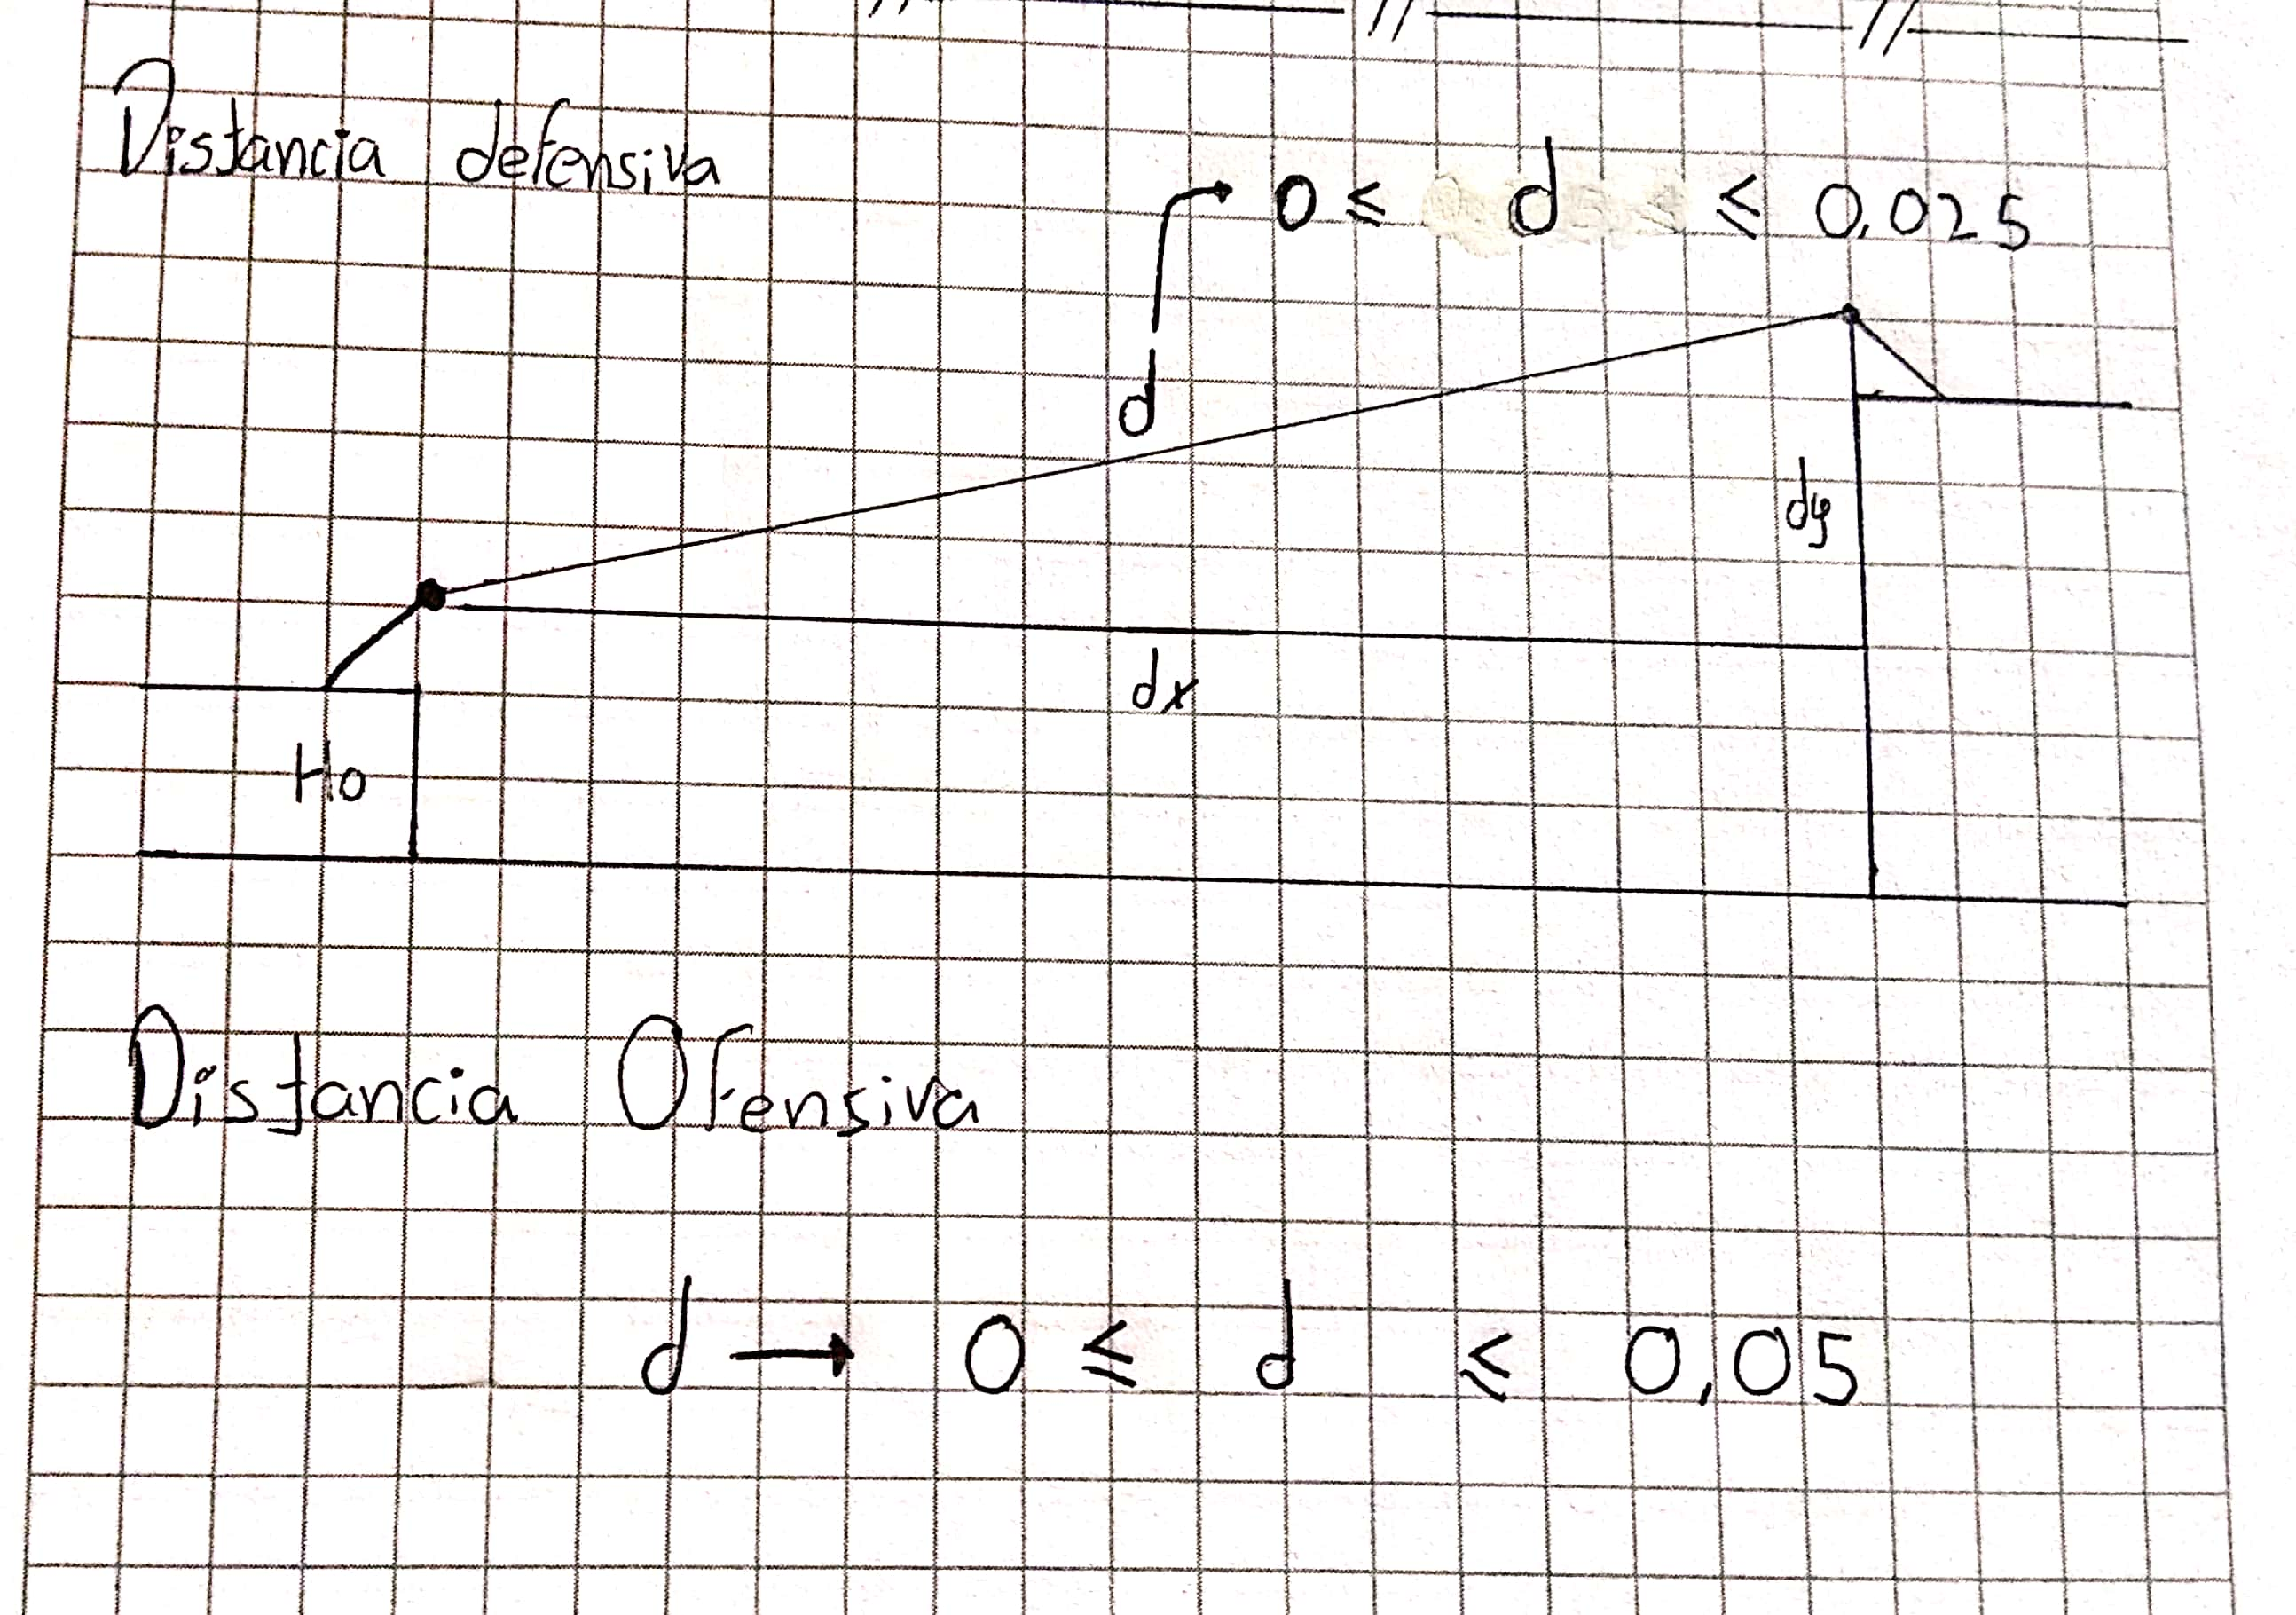 Distancia defensiva
0 ≤ d ≤ 0,025
d
dy
dx
Ho
Distancia Ofensiva
d → 0 ≤ d ≤ 0,05